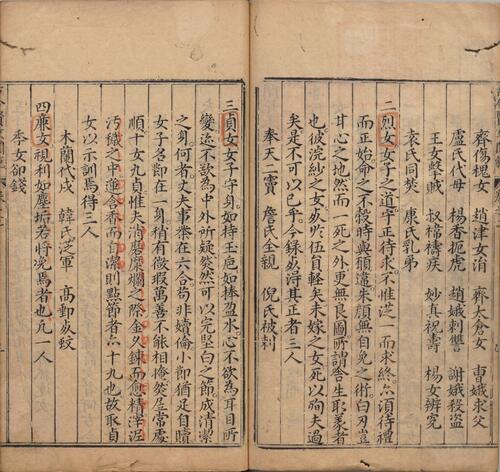 齊傷槐女　趙津女涓　齊太倉女　曹娥求父
盧氏代母　楊香扼虎　趙娥刺讐　謝娥殺盜
王女擊賊　叔褘禱疾　妙真祝壽　楊女辨冤
袁氏同焚　康氏乳弟
二烈女女子之道守正待求不惟從一而求終亦須待禮
而正始命之不穀時與願違朱顔無自免之術白刃豈
甘心之地然而一死之外更無良圖所謂舍生取義者
也彼浣紗之女以狥伍員輕矣未嫁之女死以殉夫過
矣是不可以已乎今録必潯其正者三人
奉天二竇　詹氏全親　倪氏被刺
三貞女女子守身如持玉巵如捧盈水心不欲為耳目所
變迹不欲為中外所疑然然可以完堅白之節成清潔
之身何者丈夫事業在六合苟非嬻倫小節猶足自贖
女子名節在一身稍有微瑕萬善不能相掩然居常處
順十女九貞惟夫消磨糜爛之際金久錬而愈精滓泥
汚穢之中蓮含香而自潔則點節者亦十九也故取貞
女以示訓焉得三人
木蘭代戍　韓氏從軍　高郵死蚊
四廉女視利如塵垢若將凂焉者也凢一人
季女卻錢